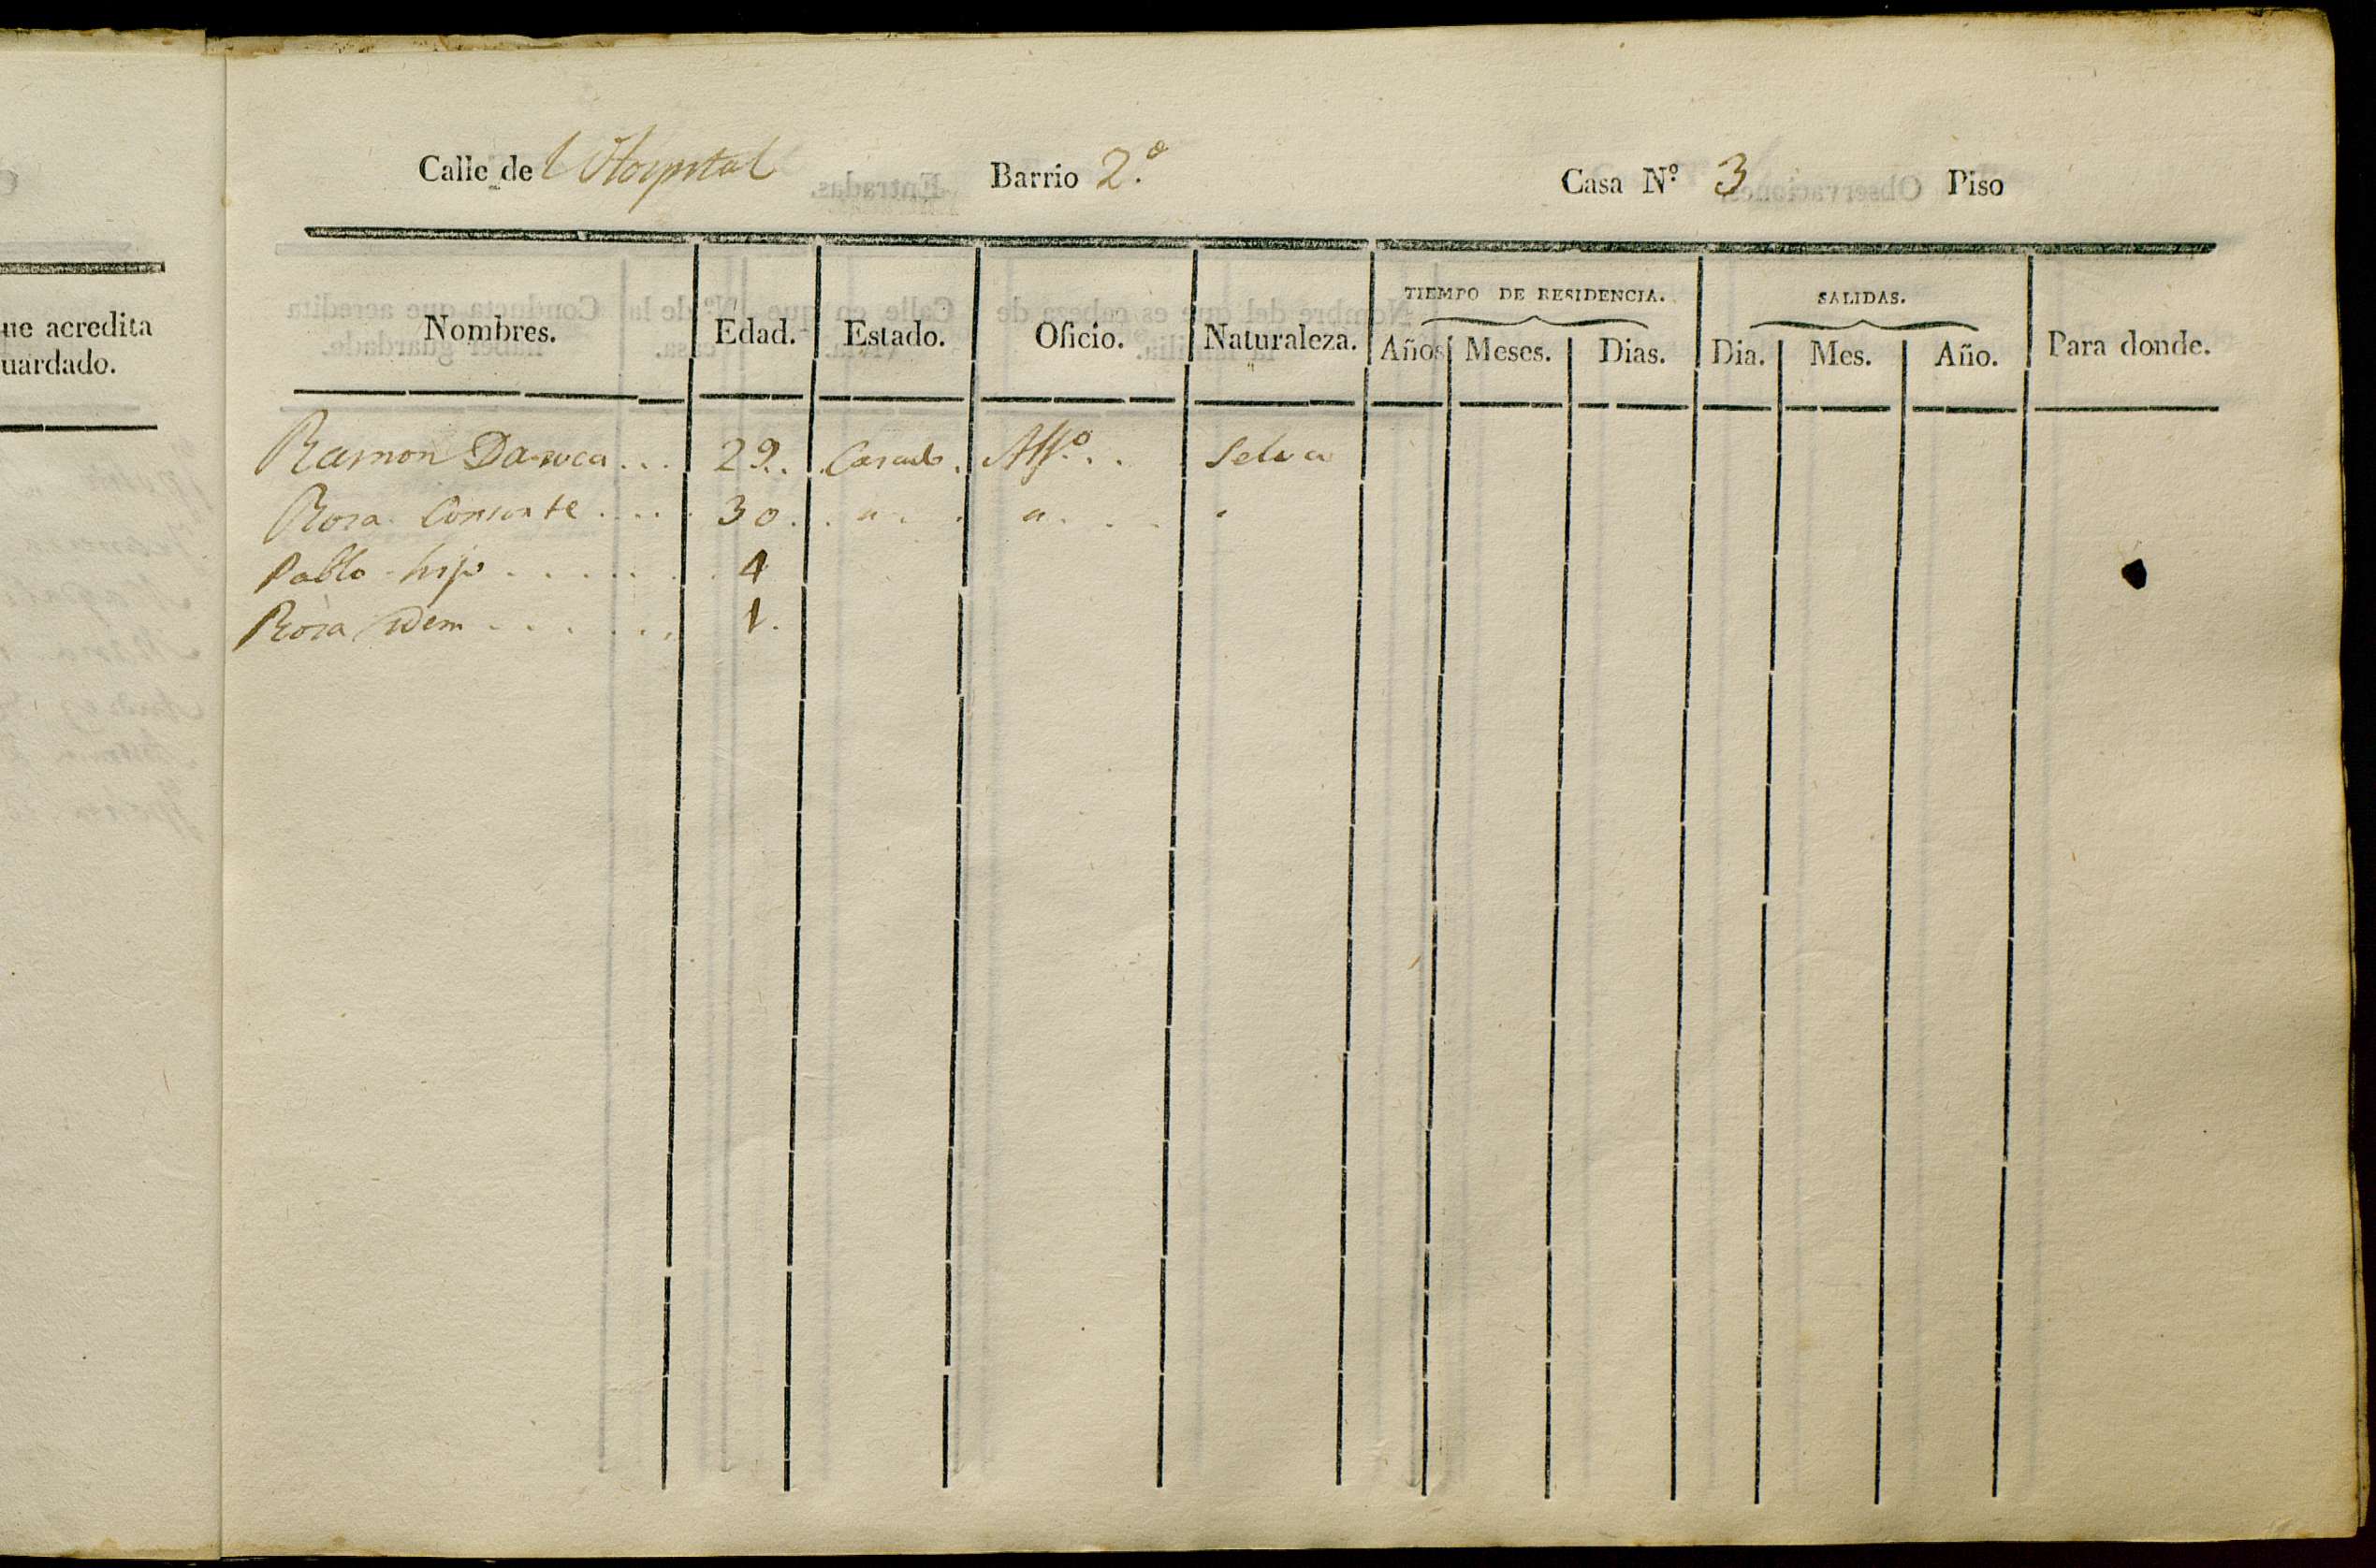 Calle de l Hospital Barrio 2.º Casa Nº 3 Piso
ue acredita
uardado.
Nombres. Edad. Estado. Oficio. Naturaleza. TIEMPO DE RESIDENCIA. Años Meses. Dias. SALIDAS. Dia. Mes. Año. Para donde.
Ramon Daroca... 29.. Casado. Selva
Rosa Consorte.... 30.. " . . " . . .
Pablo hijo....... 4
Rosa idem...... 1.